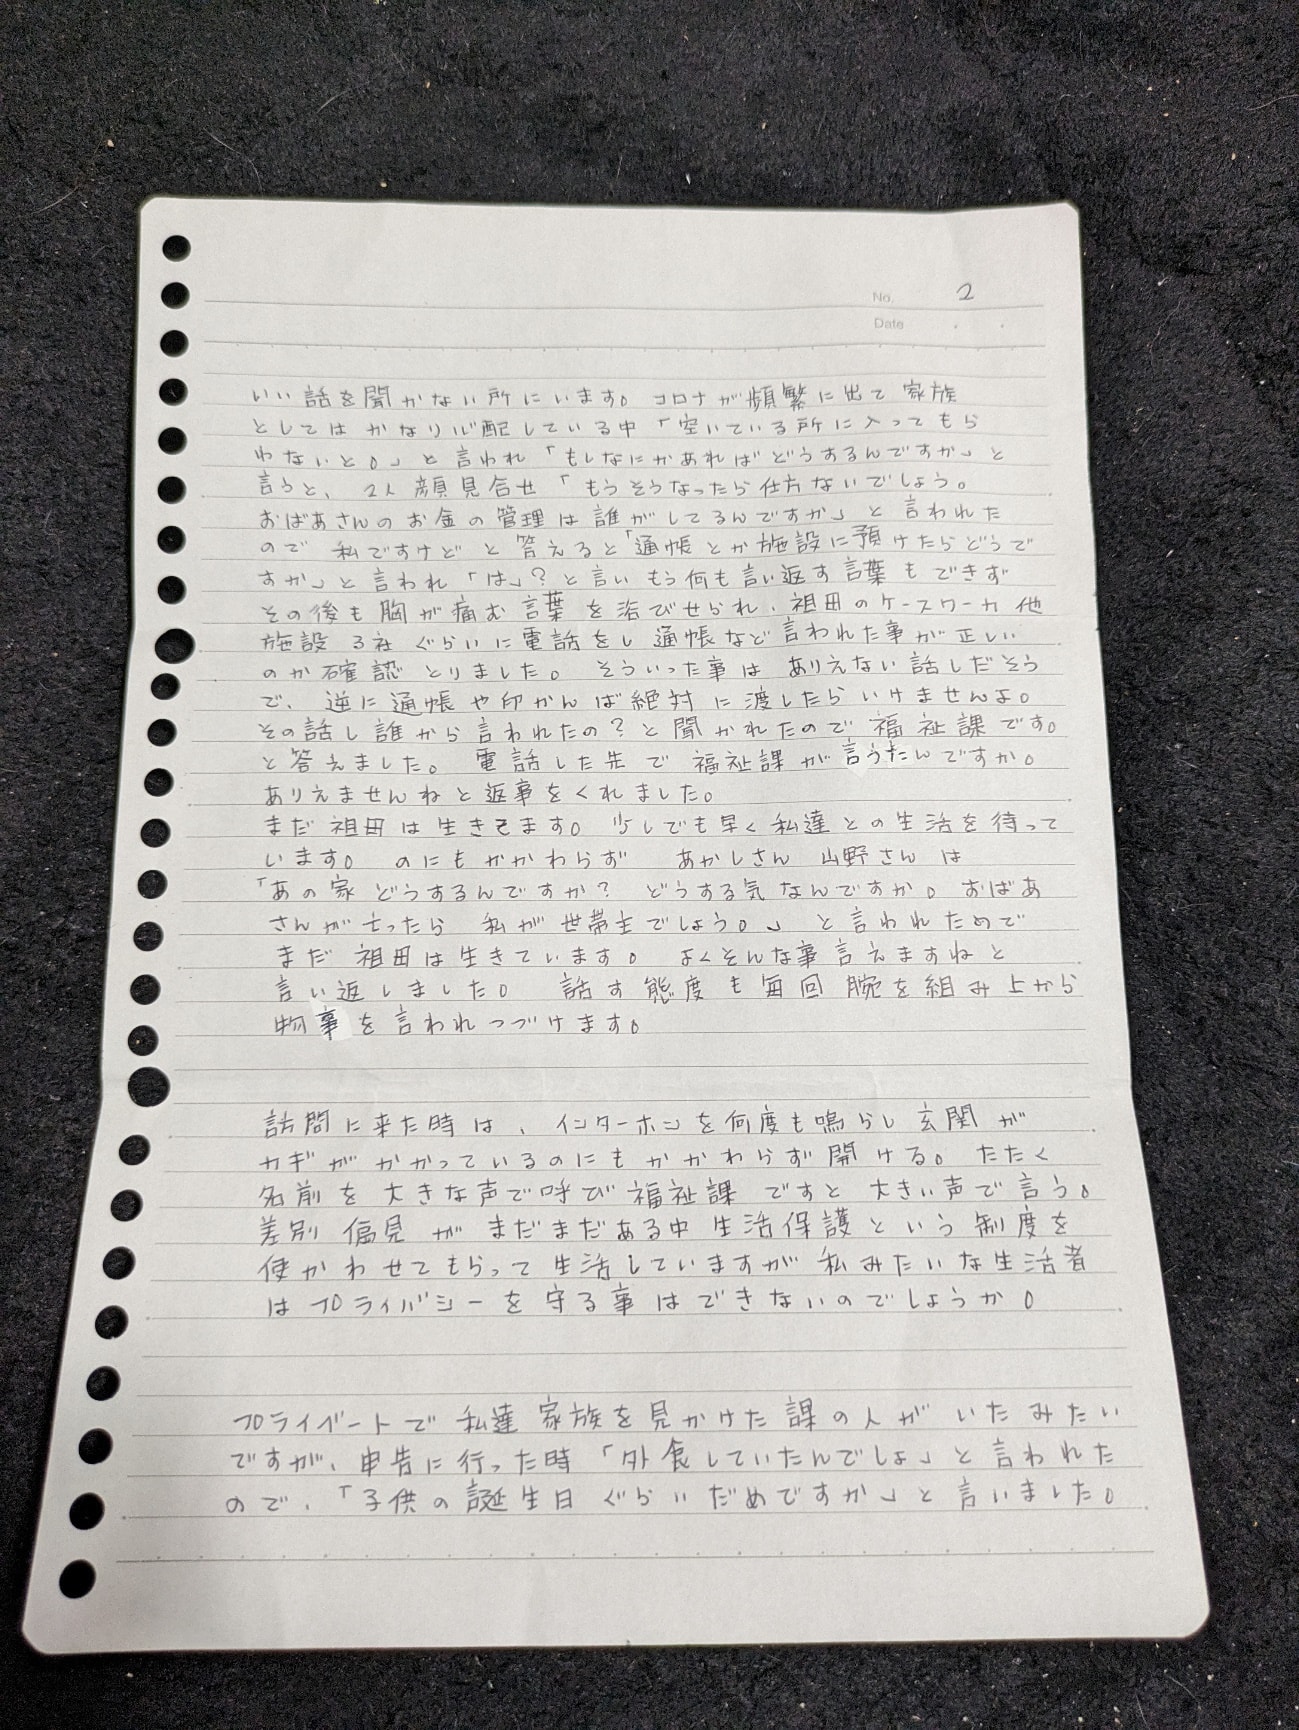 No. 2
Date
いい話を聞かない所にいます。コロナが頻繁に出て家族
としてはかなり心配している中「空いている所に入ってもら
わないと。」と言われ「もしなにかあればどうするんですか」と
言うと、2人顔見合せ「もうそうなったら仕方ないでしょう。
おばあさんのお金の管理は誰がしてるんですか」と言われた
ので私ですけどと答えると「通帳とか施設に預けたらどうで
すか」と言われ「は」?と言いもう何も言い返す言葉もできず
その後も胸が痛む言葉を浴びせられ、祖母のケースワーカ他
施設3社ぐらいに電話をし通帳など言われた事が正しい
のか確認とりました。そういった事はありえない話しだそう
で、逆に通帳や印かんは絶対に渡したらいけませんよ。
その話し誰から言われたの?と聞かれたので福祉課です。
と答えました。電話した先で福祉課が言うたんですか。
ありえませんねと返事をくれました。
まだ祖母は生きてます。少しでも早く私達との生活を待って
います。のにもかかわらず あかしさん 山野さんは
「あの家どうするんですか? どうする気なんですか。おばあ
さんが亡ったら 私が世帯主でしょう。」と言われためで
まだ祖母は生きています。よくそんな事言えますねと
言い返しました。話す態度も毎回腕を組み上から
物事を言われつづけます。
訪問に来た時は、インターホンを何度も鳴らし玄関が
カギがかかっているのにもかかわらず開ける。たたく
名前を大きな声で呼び福祉課ですと大きい声で言う。
差別偏見がまだまだある中生活保護という制度を
使かわせてもらって生活していますが私みたいな生活者
はプライバシーを守る事はできないのでしょうか。
プライベートで私達家族を見かけた課の人がいたみたい
ですが、申告に行った時「外食していたんでしょ」と言われた
ので、「子供の誕生日ぐらいだめですか」と言いました。